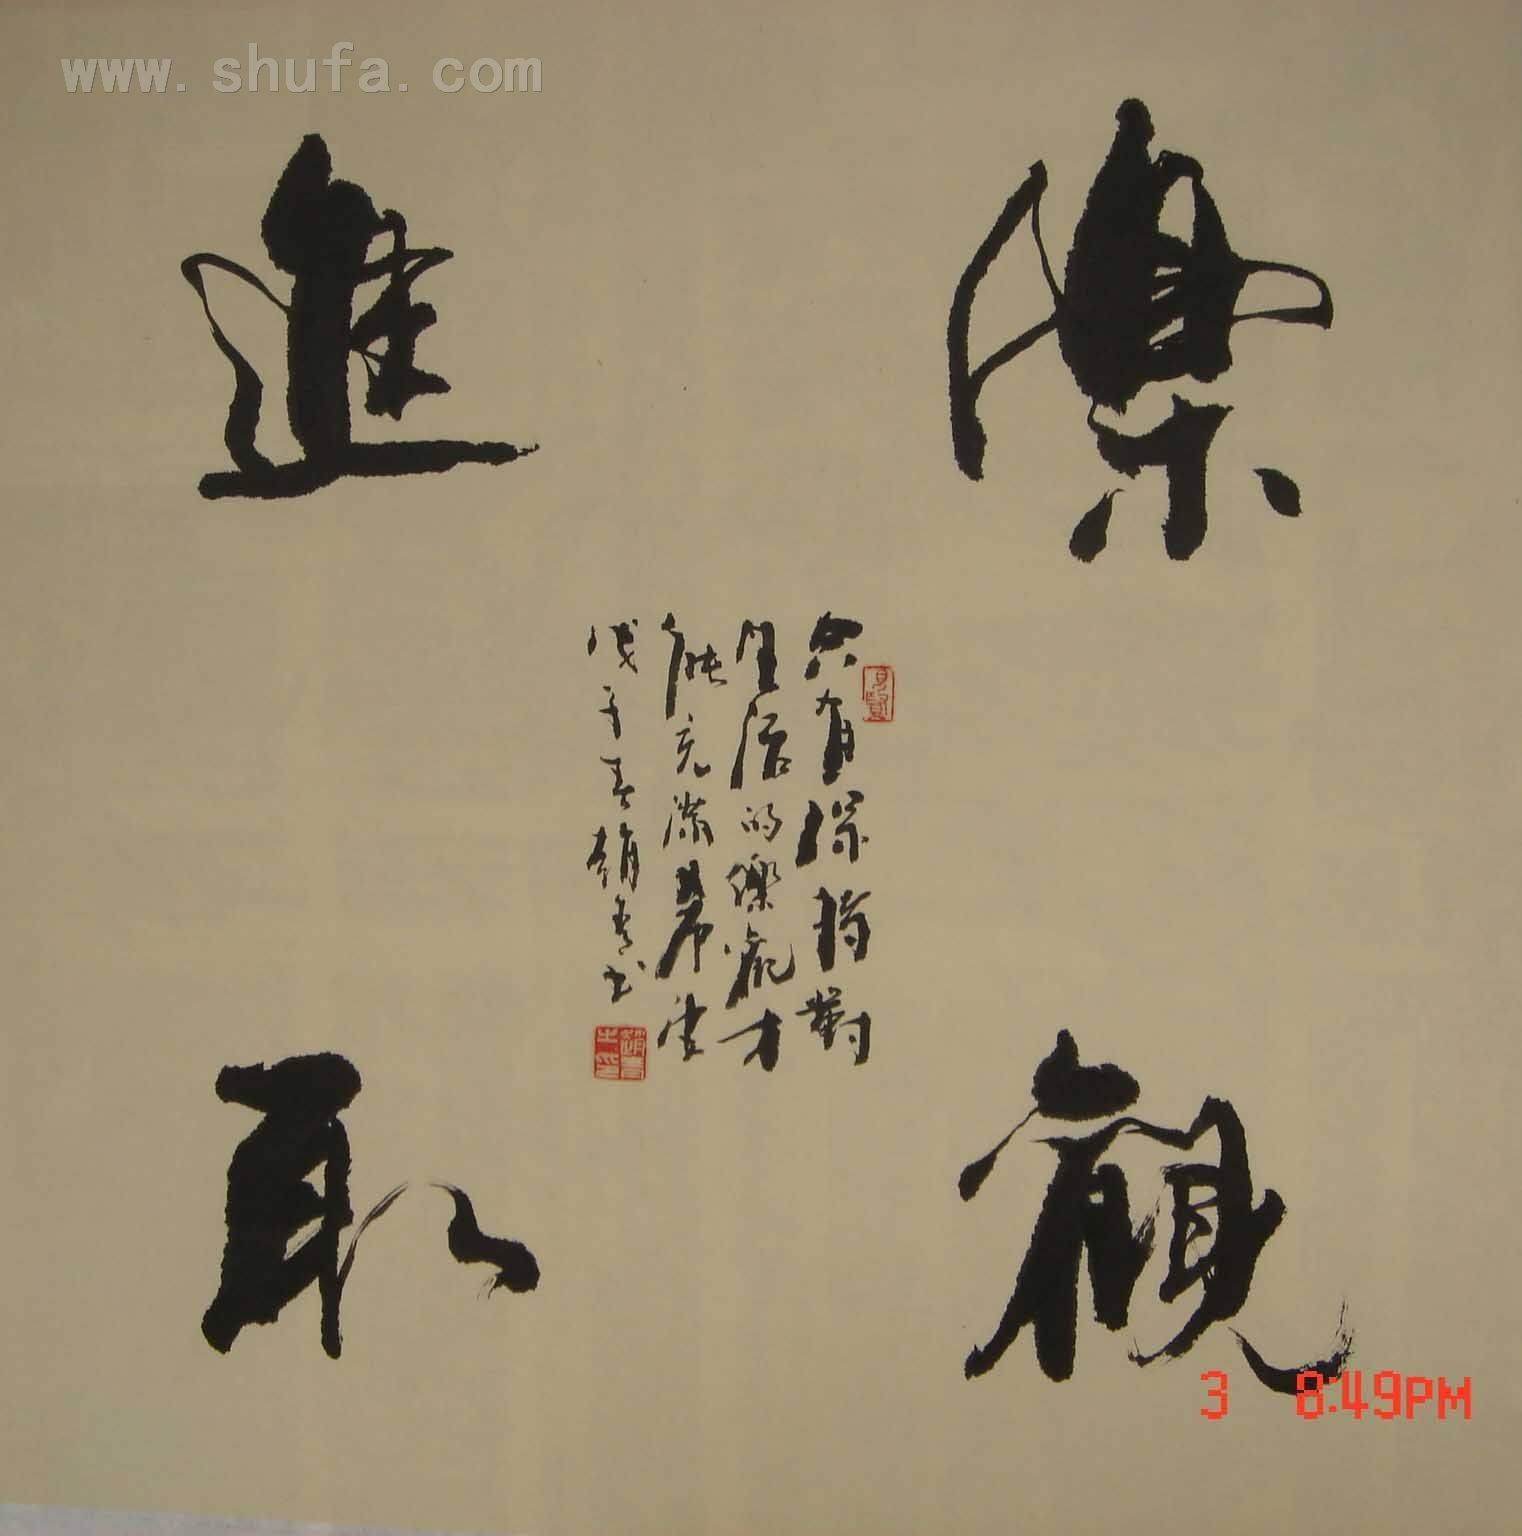 www.shufa.com
樂觀
進取
只有保持對
生活的樂觀才
能充滿希望
戊子春趙青書
趙青之印
3 8:49PM